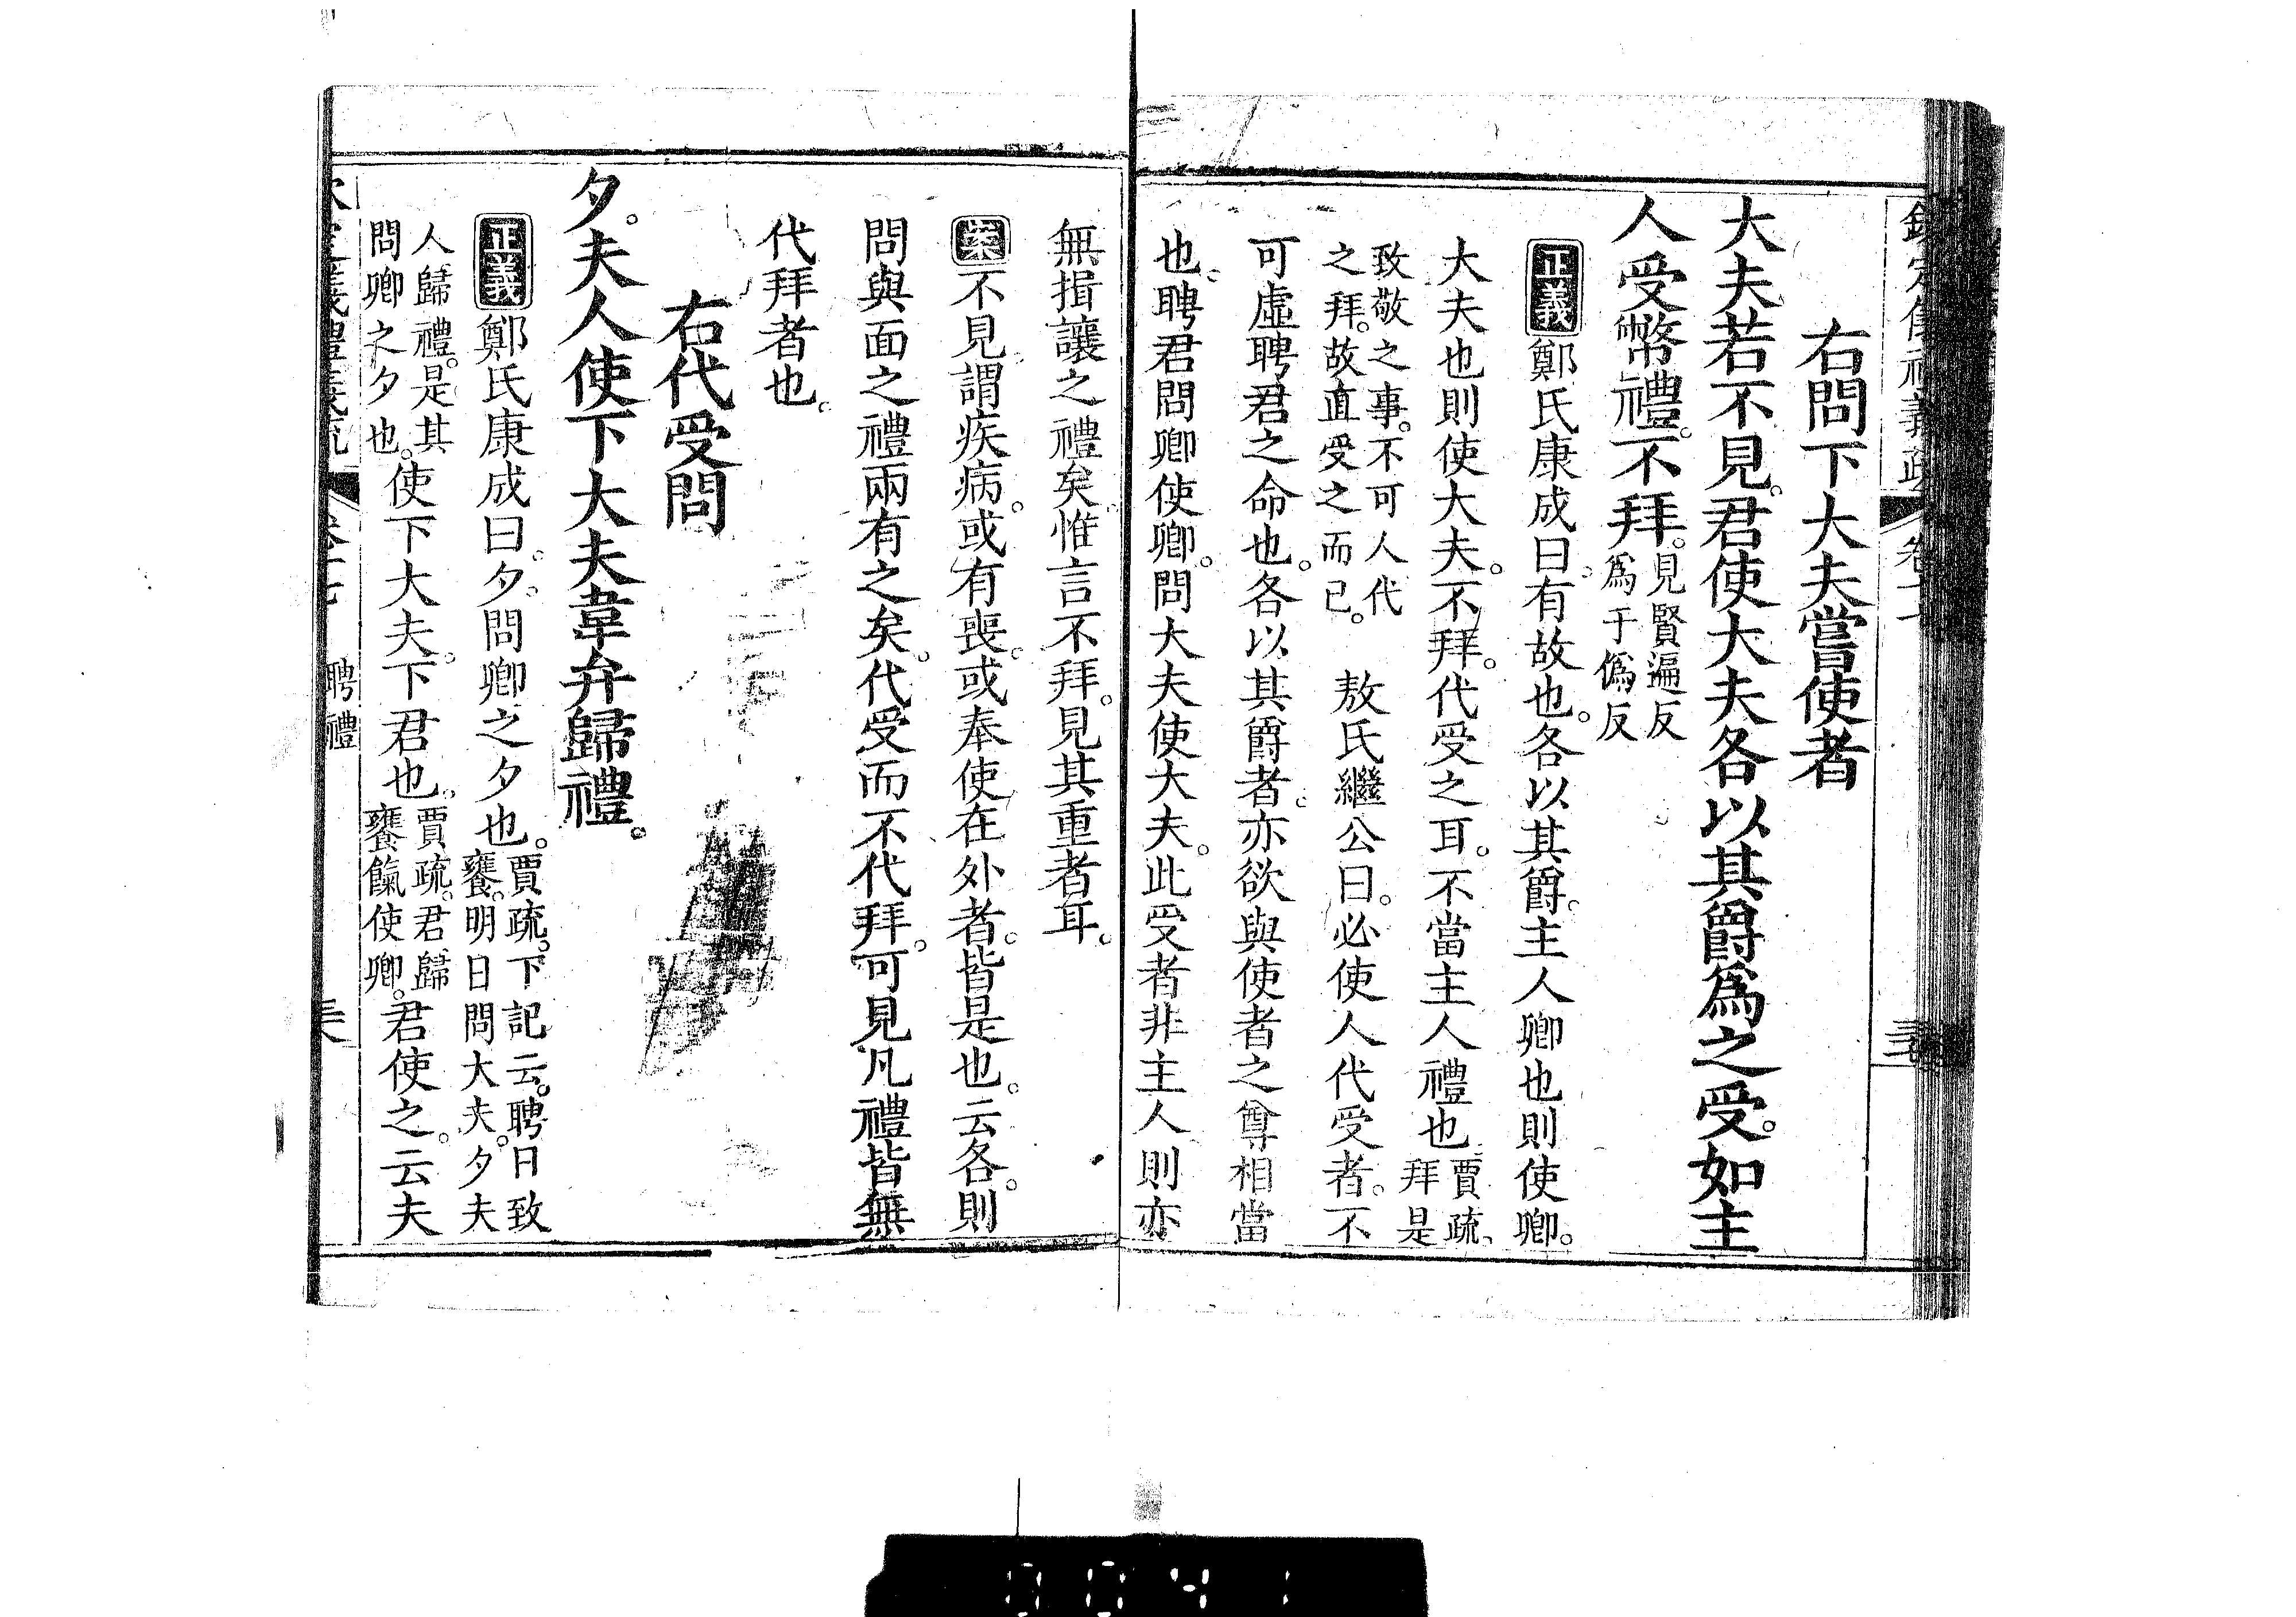 右問下大夫嘗使者
大夫若不見。君使大夫各以其爵爲之受。如主
人受幣禮。不拜。見賢遍反
爲于僞反
正義鄭氏康成曰。有故也。各以其爵。主人卿也則使卿。
大夫也則使大夫。不拜。代受之耳。不當主人禮也賈疏、
拜是
致敬之事。不可人代
之拜。故直受之而已。敖氏繼公曰。必使人代受者。不
可虛聘君之命也。各以其爵者。亦欲與使者之尊相當
也。聘君問卿使卿。問大夫使大夫。此受者非主人則亦
無揖讓之禮矣。惟言不拜。見其重者耳。
案不見。謂疾病。或有喪。或奉使在外者。皆是也。云各。則
問與面之禮兩有之矣。代受而不代拜。可見凡禮皆無
代拜者也。
右代受問
夕。夫人使下大夫韋弁歸禮。
正義鄭氏康成曰。夕。問卿之夕也。賈疏。下記云。聘日致
饔。明日問大夫。夕夫
人歸禮。是其
問卿之夕也。使下大夫。下君也。賈疏。君歸
饔餼使卿。君使之。云夫
聘禮